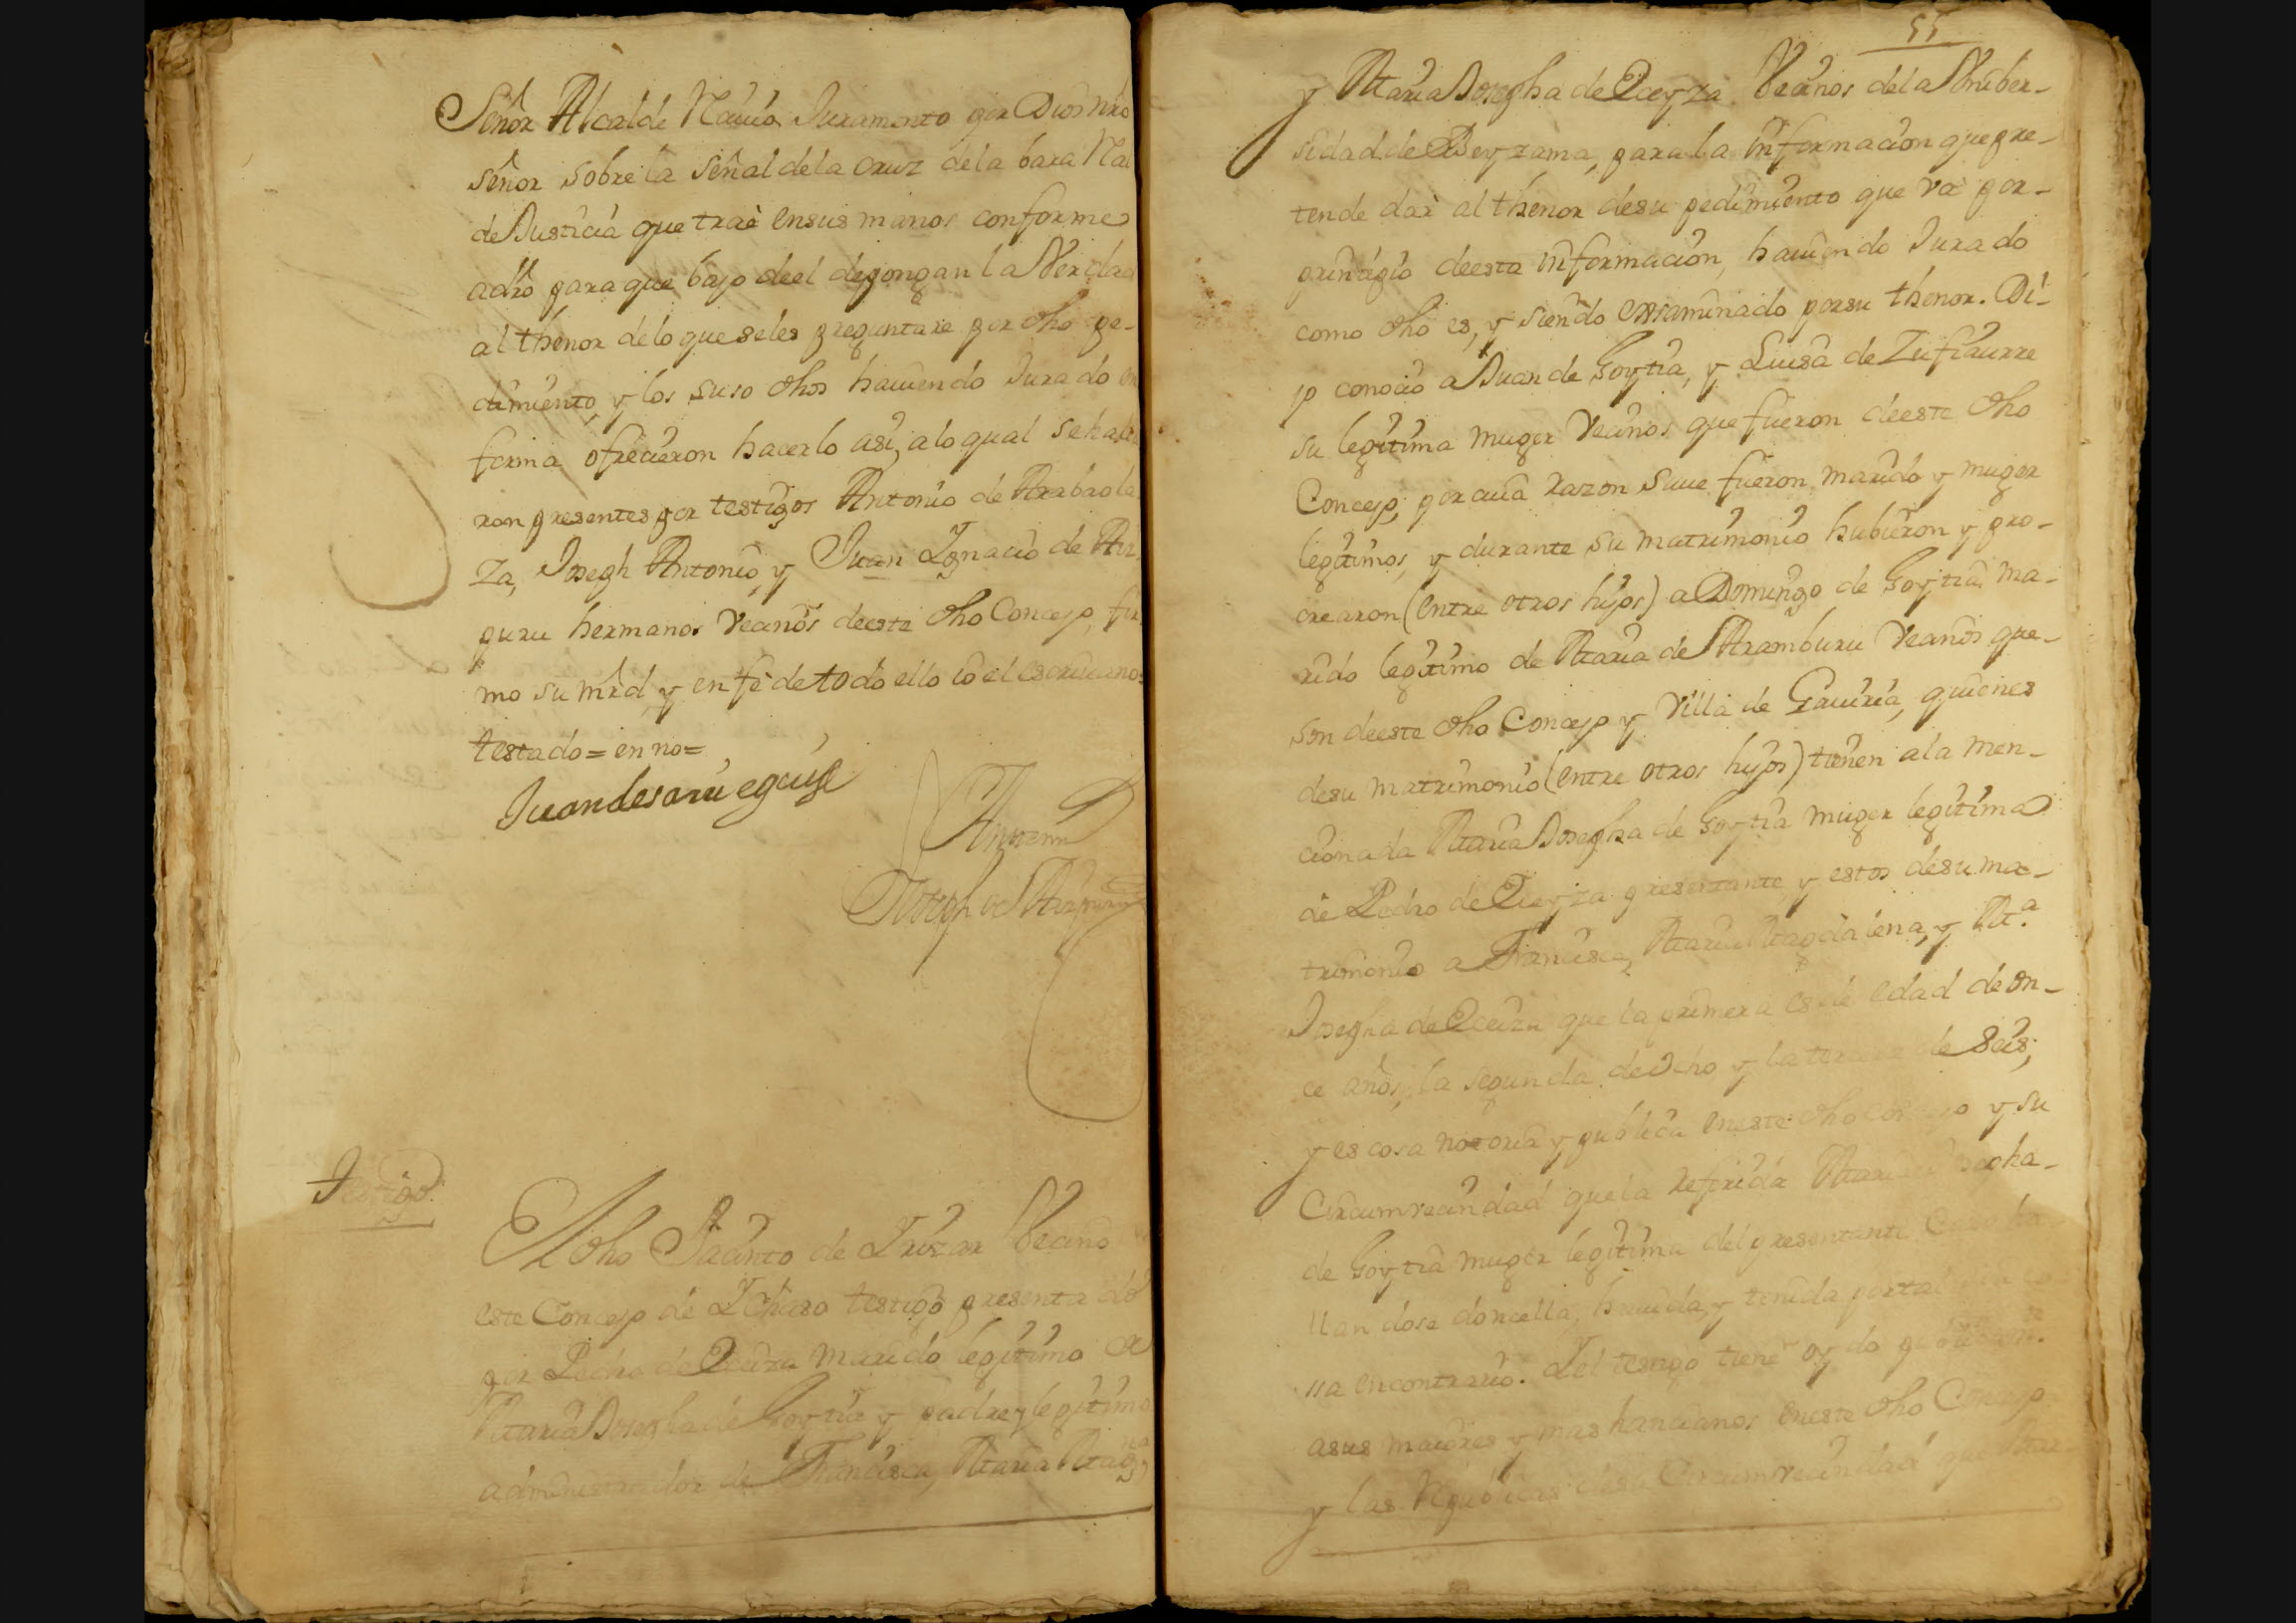 Señor Alcalde Reciuio Juramento por Dios nro
señor sobre la señal de la cruz de la bara Ral
de Justicia que trae en sus manos conforme
a dro para que bajo de el depongan la Verdad
al thenor de lo que seles preguntare por dho pe-
dimiento, y los suso dhos hauiendo Jurado en
forma ofrecieron hacerlo asi, a lo qual se halla
ron presentes por testigos Antonio de Arabaola
za, Joseph Antonio, y Juan Ignacio de Aiz
puru hermanos Vecinos de este dho Concejo, fir
mo su mrd, y en fe de todo ello io el escriuano=
testado= en no=
Juan de saruegui
Ante mi
Joseph de Aizpuru
Testigo
El dho Jacinto de Irizar Vecino
este Concejo de Ichaso testigo presentado
por Pedro de Oceiza marido legitimo de
Maria Josepha de Goytia y padre y legitimo
administrador de Francisca, Maria Mag.na
55
y Maria Josepha de Oceyza Vecinos de la Vniber-
sidad de Beyzama, para la informacion que pre-
tende dar al thenor de su pedimiento que va por-
principio de esta informacion, hauiendo Jurado
como dho es, y siendo exsaminado por su thenor. Di-
jo conocio a Juan de Goytia, y Luisa de Zufiaurre
su legitima muger Vecinos que fueron de este dho
Concejo; por cuia razon saue fueron marido y muger
legitimos, y durante su matrimonio hubieron y pro-
crearon (entre otros hijos) a Domingo de Goytia ma-
rido legitimo de Maria de Aramburu Vecinos que-
son de este dho Concejo y Villa de Gauiria, quienes
de su matrimonio (entre otros hijos) tienen a la men-
cionada Maria Josepha de Goytia muger legitima
de Pedro de Oceyza presentante, y estos de su ma-
trimonio a Francisca, Maria Magdalena, y M.a
Josepha de Oceiza que la primera es de edad de on-
ce años, la segunda de ocho y la tercera de seis;
y es cosa notoria y publica en este dho concejo y su
Circumvecindad que la referida Maria Josepha-
de Goytia muger legitima del presentante Caso ha
llandose doncella, hauida, y tenida por tal sin co
sa en contrario. Y el testigo tiene oydo publicam.te
a sus maiores y mas hancianos en este dho Concejo
y las Republicas de su Circumvecindad que Mari